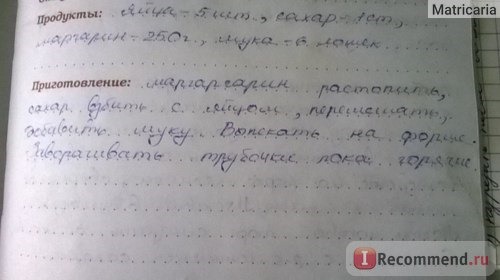 Matricaria
Продукты: Яйца - 5 шт., сахар - 1 ст,
маргарин - 250 г., мука - 6 ложек
Приготовление: маргарсарин растопить,
сахар взбить с яйцом, перемешать,
добавить муку. Выпекать на форме.
Заворачивать трубочкие пока горячие.
IRecommend.ru